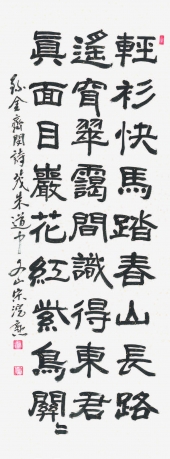 輕衫快馬踏春山長路
遙翠靄間識得東君
眞面目巖花紅紫鳥關〻
金齋閑詩茂朱道中 又山宋